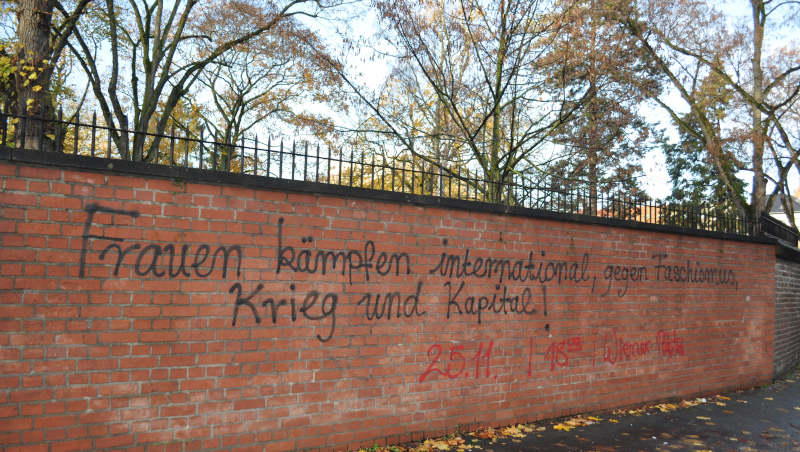 Frauen kämpfen international, gegen Faschismus,
Krieg und Kapital!
25.11. | 18⁰⁰ | Wiener Platz